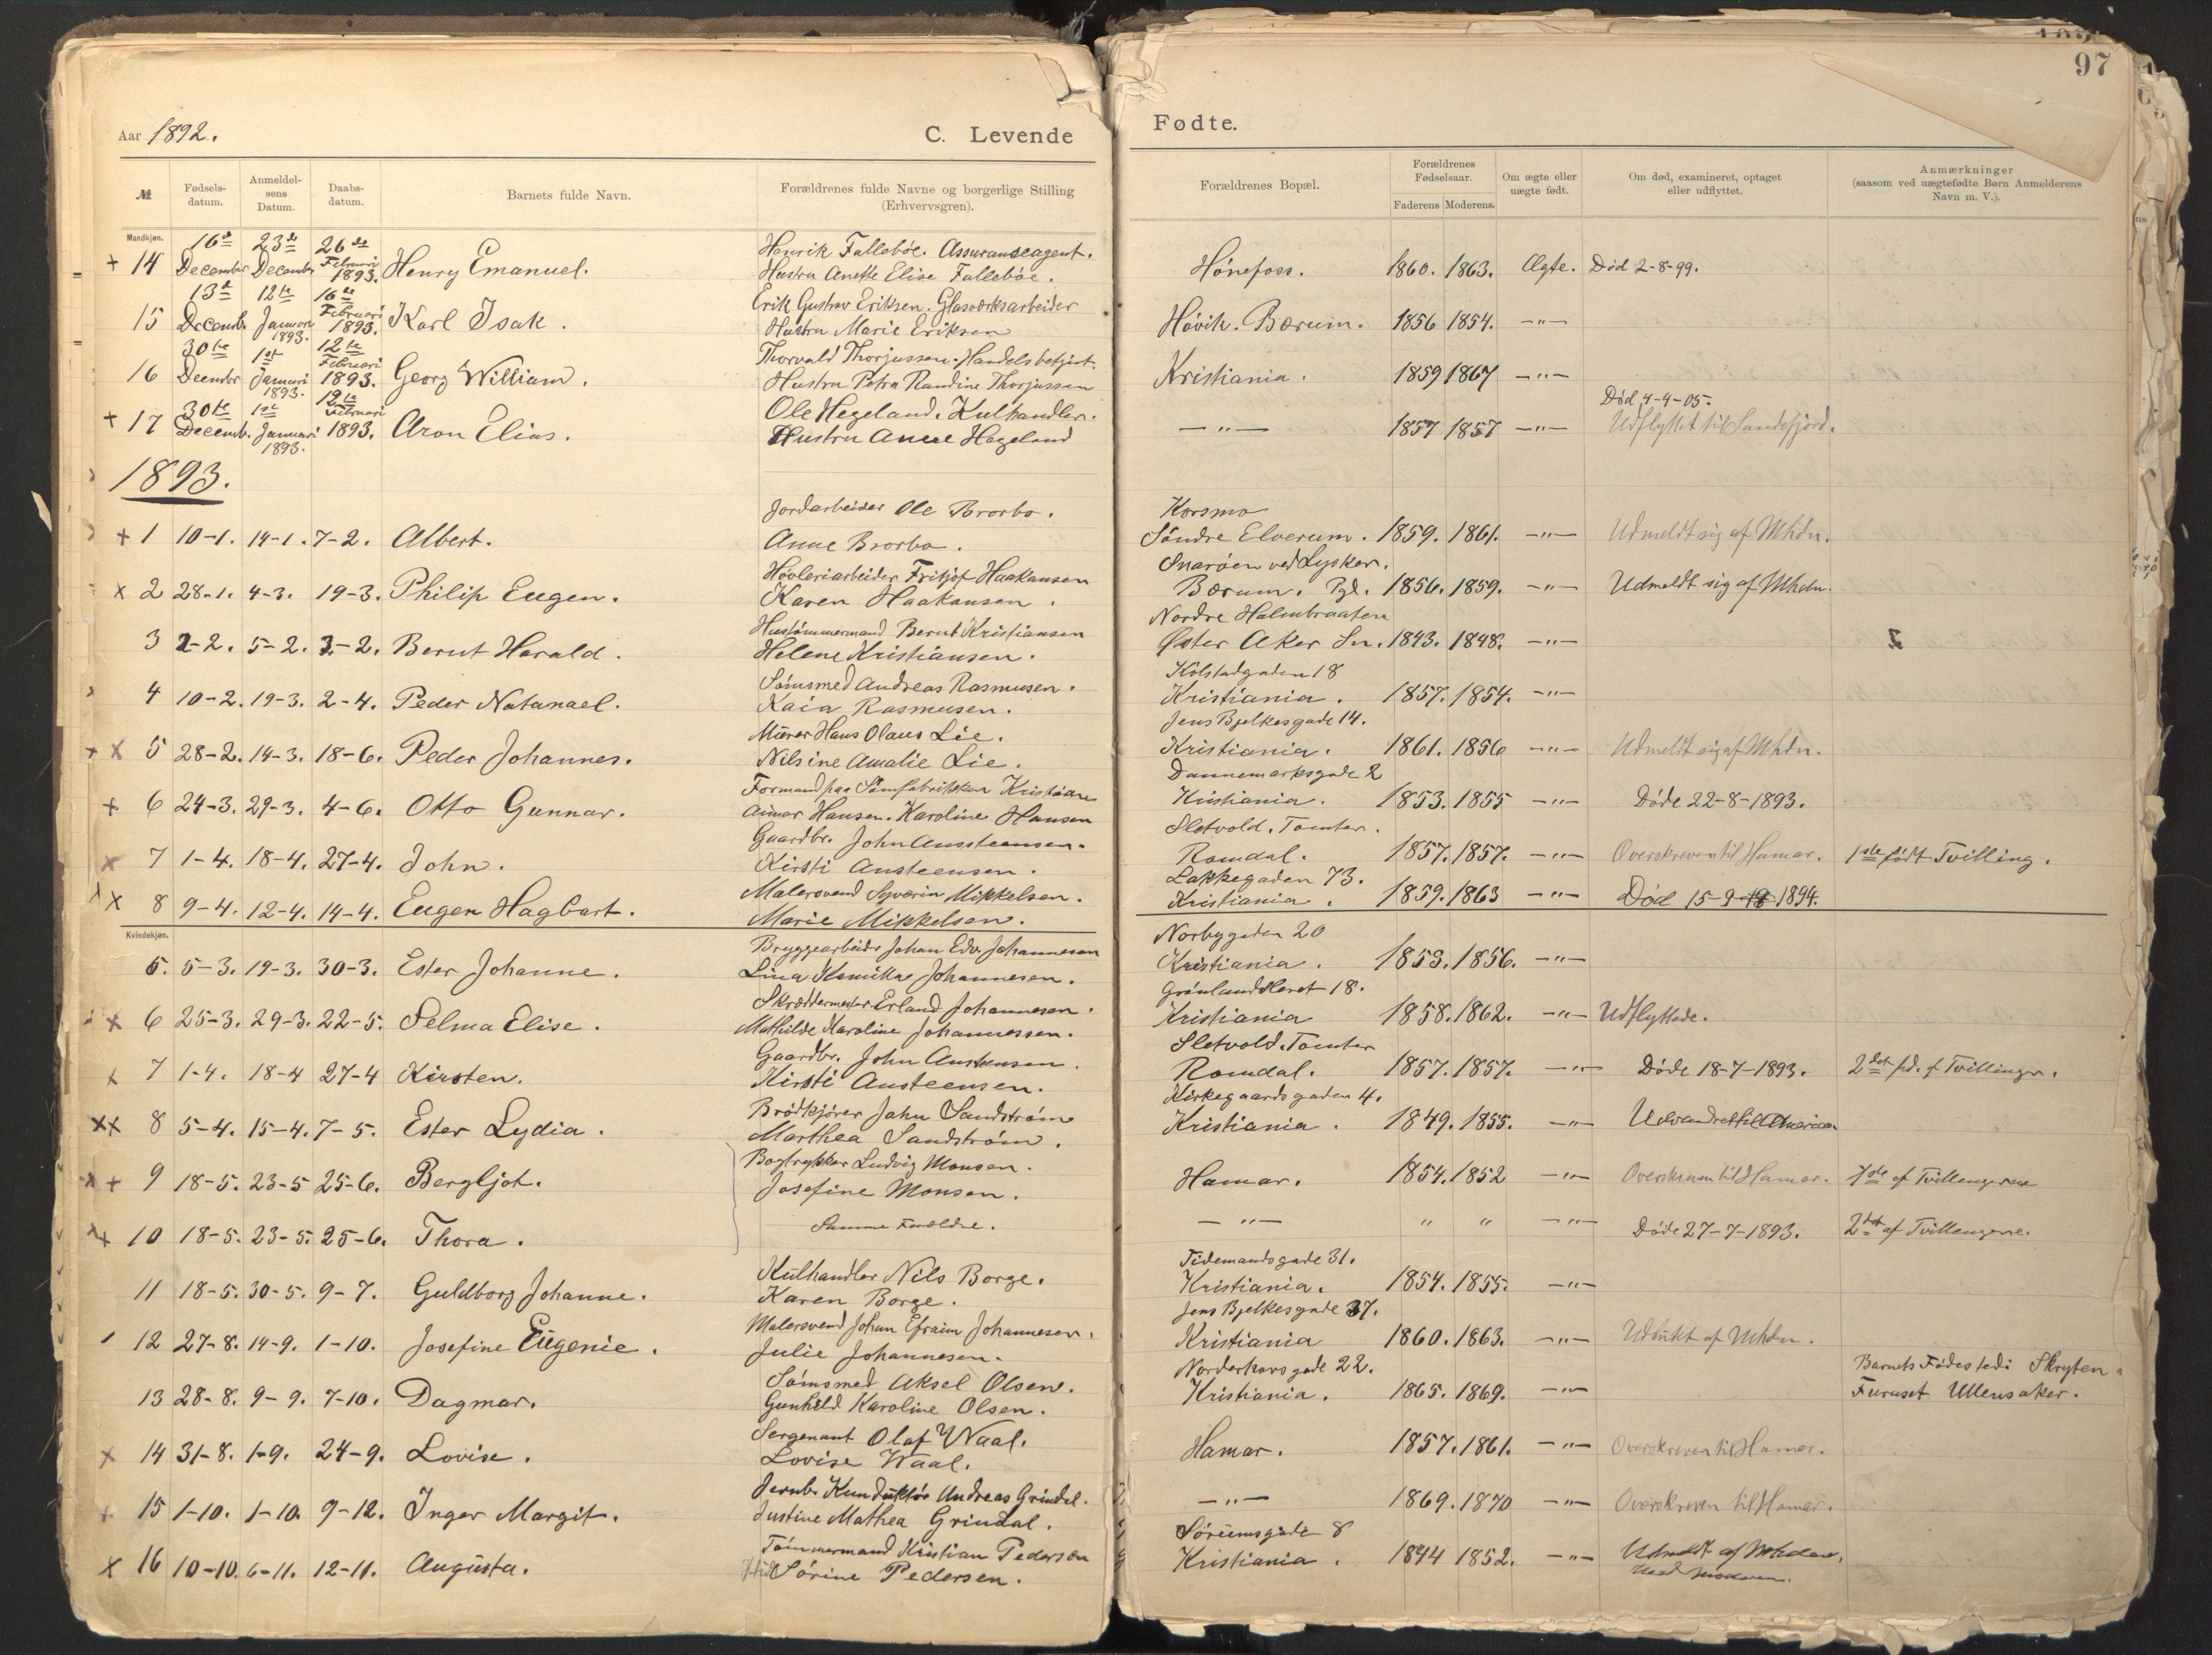 97
Aar 1892.
C. Levende Fødte.
№ Fødsels-datum. Anmeldel-sens Datum. Daabs-datum. Barnets fulde Navn. Forældrenes fulde Navne og borgerlige Stilling (Erhvervsgren). Forældrenes Bopæl. Forældrenes Fødselsaar. Faderens Moderens. Om ægte eller uægte født. Om død, examineret, optaget eller udflyttet. Anmærkninger (saasom ved uægtefødte Børn Anmelderens Navn m. V.).
Mandkjøn.
16de 23de 26de Henrik Falleböe. Assuranceagent.
+ 14 December December Februari 1893. Henry Emanuel. Hustru Anette Elise Falleböe. Hónefoss. 1860. 1863. Ægte. Död 2-8-99.
13de 12te 16de Erik Gustav Eriksen. Glasværksarbeider
15 Decemb. Januari 1893. Februari 1893. Karl Isak. Hustru Marie Eriksen Hóvik. Bærum. 1856 1854. -"-
30te 1ste 12te Thorvald Thorjussen. Handelsbetjent.
16 Decembr Januari 1893. Februari 1893. Georg William. Hustru Petra Randine Thorjussen Kristiania. 1859 1867 -"-
30te 1ste 12te Ole Hegeland. Kulhandler. Död 4-4-05.
+ 17 Decemb. Januari 1893. Februari 1893. Aron Elias. Hustru Anne Hegeland -"- 1857 1857 -"- Udflyttet til Sandefjord.
1893.
Jordarbeider Ole Brorbo. Korsmo
+ 1 10-1. 14-1. 7-2. Albert. Anne Brorbo. Söndre Elverum. 1859. 1861. -"- Udmeldt sig af Mhdn.
Hövleriarbeider Fritjof Haakansen Snaröen ved Lysker.
x 2 28-1. 4-3. 19-3. Philip Eugen. Karen Haakansen. Bærum. Pgl. 1856. 1859. -"- Udmeldt sig af Mhdn.
Hustömmermand Bernt Kristiansen Nordre Halmbraaten
3 2-2. 5-2. 3-2. Bernt Harald. Helene Kristiansen. Öster Aker Sn. 1843. 1848. -"-
Sömsmed Andreas Rasmusen. Kolstadgaden 18
4 10-2. 19-3. 2-4. Peder Natanael. Kaia Rasmusen. Kristiania. 1857. 1854. -"-
Mürer Hans Olaus Lie. Jens Bjelkesgade 14.
+ x 5 28-2. 14-3. 18-6. Peder Johannes. Nilsine Amalie Lie. Kristiania. 1861. 1856 -"- Udmeldt sig af Mhdn.
Formand paa Sömfabrikken Kristian Dannemarksgade 2
+ 6 24-3. 29-3. 4-6. Otto Gunnar. Hansen. Karoline Hansen Kristiania. 1853. 1855 -"- Döde 22-8-1893.
Gaardbr. John Aussteensen. Sletvold. Tomter.
x 7 1-4. 18-4. 27-4. John. Kirsti Austeensen. Romdal. 1857. 1857. -"- Overskreven til Hamar. 1ste födt Tvilling.
Malersvend Syverin Mikkelsen. Lakkegaden 73.
x 8 9-4. 12-4. 14-4. Eugen Hagbart. Marie Mikkelsen. Kristiania. 1859. 1863 -"- Död 15-9-1894.
Kvindekjøn.
Bryggearbeider Johan Edv. Johannesen Norbygaden 20
5. 5-3. 19-3. 30-3. Ester Johanne. Lina Kamilla Johannesen. Kristiania. 1853. 1856. -"-
Skræddermester Erland Johannesen. Grönlandsleret 18.
x 6 25-3. 29-3. 22-5. Selma Elise. Mathilde Karoline Johannessen. Kristiania 1858. 1862. -"- Udflyttede.
Gaardbr. John Austeensen. Sletvold. Tomter
x 7 1-4. 18-4 27-4 Kirsten. Kirsti Austeensen. Romdal. 1857. 1857. -"- Döde 18-7-1893. 2det fd. af Tvillinger.
Brödkjörer Jahn Sandström Kirkegaardsgaden 4.
xx 8 5-4. 15-4. 7-5. Ester Lydia. Marthea Sandström. Kristiania. 1849. 1855. -"- Udvandret til America
Bogtrykker Ludvig Monsen.
+ 9 18-5. 23-5 25-6. Bergljot. Josefine Monsen. Hamar. 1854. 1852 -"- Overskreven til Hamar. 1ste af Tvillengerne
10 18-5. 23-5. 25-6. Thora. Samme Forældre. -"- " " -"- Döde 27-7-1893. 2det af Tvillengerne.
Kulhandler Nils Borge. Tidemandsgade 31.
11 18-5. 30-5. 9-7. Guldborg Johanne. Karen Borge. Kristiania. 1854. 1855. -"-
Malersvend Johan Efraim Johannesen. Jens Bjelkesgade 37.
12 27-8. 14-9. 1-10. Josefine Eugenie. Julie Johannesen. Kristiania 1860. 1863. -"- Udlukt af Mhdn.
Sömsmed Aksel Olsen. Norderhovsgade 22. Barnets Födested: Skryten
13 28-8. 9-9. 7-10. Dagmar. Gunhild Karoline Olsen. Kristiania. 1865. 1869. -"- Furuset Ullensaker.
Sergenant Olaf Waal.
x 14 31-8. 1-9. 24-9. Lovise. Lovise Waal. Hamar. 1857. 1861. -"- Overskreven til Hamar.
Jernb. Kunduktör Andreas Grindal.
+ 15 1-10. 1-10. 9-12. Inger Margit. Justine Mathea Grindal. -"- 1869. 1870 -"- Overskreven til Hamar.
Tömmermand Kristian Pedersen Sörumsgade 8
x 16 10-10. 6-11. 12-11. Augusta. Sörine Pedersen. Kristiania. 1844 1852. -"- Udmeldt af Mhdn.
med moderen.